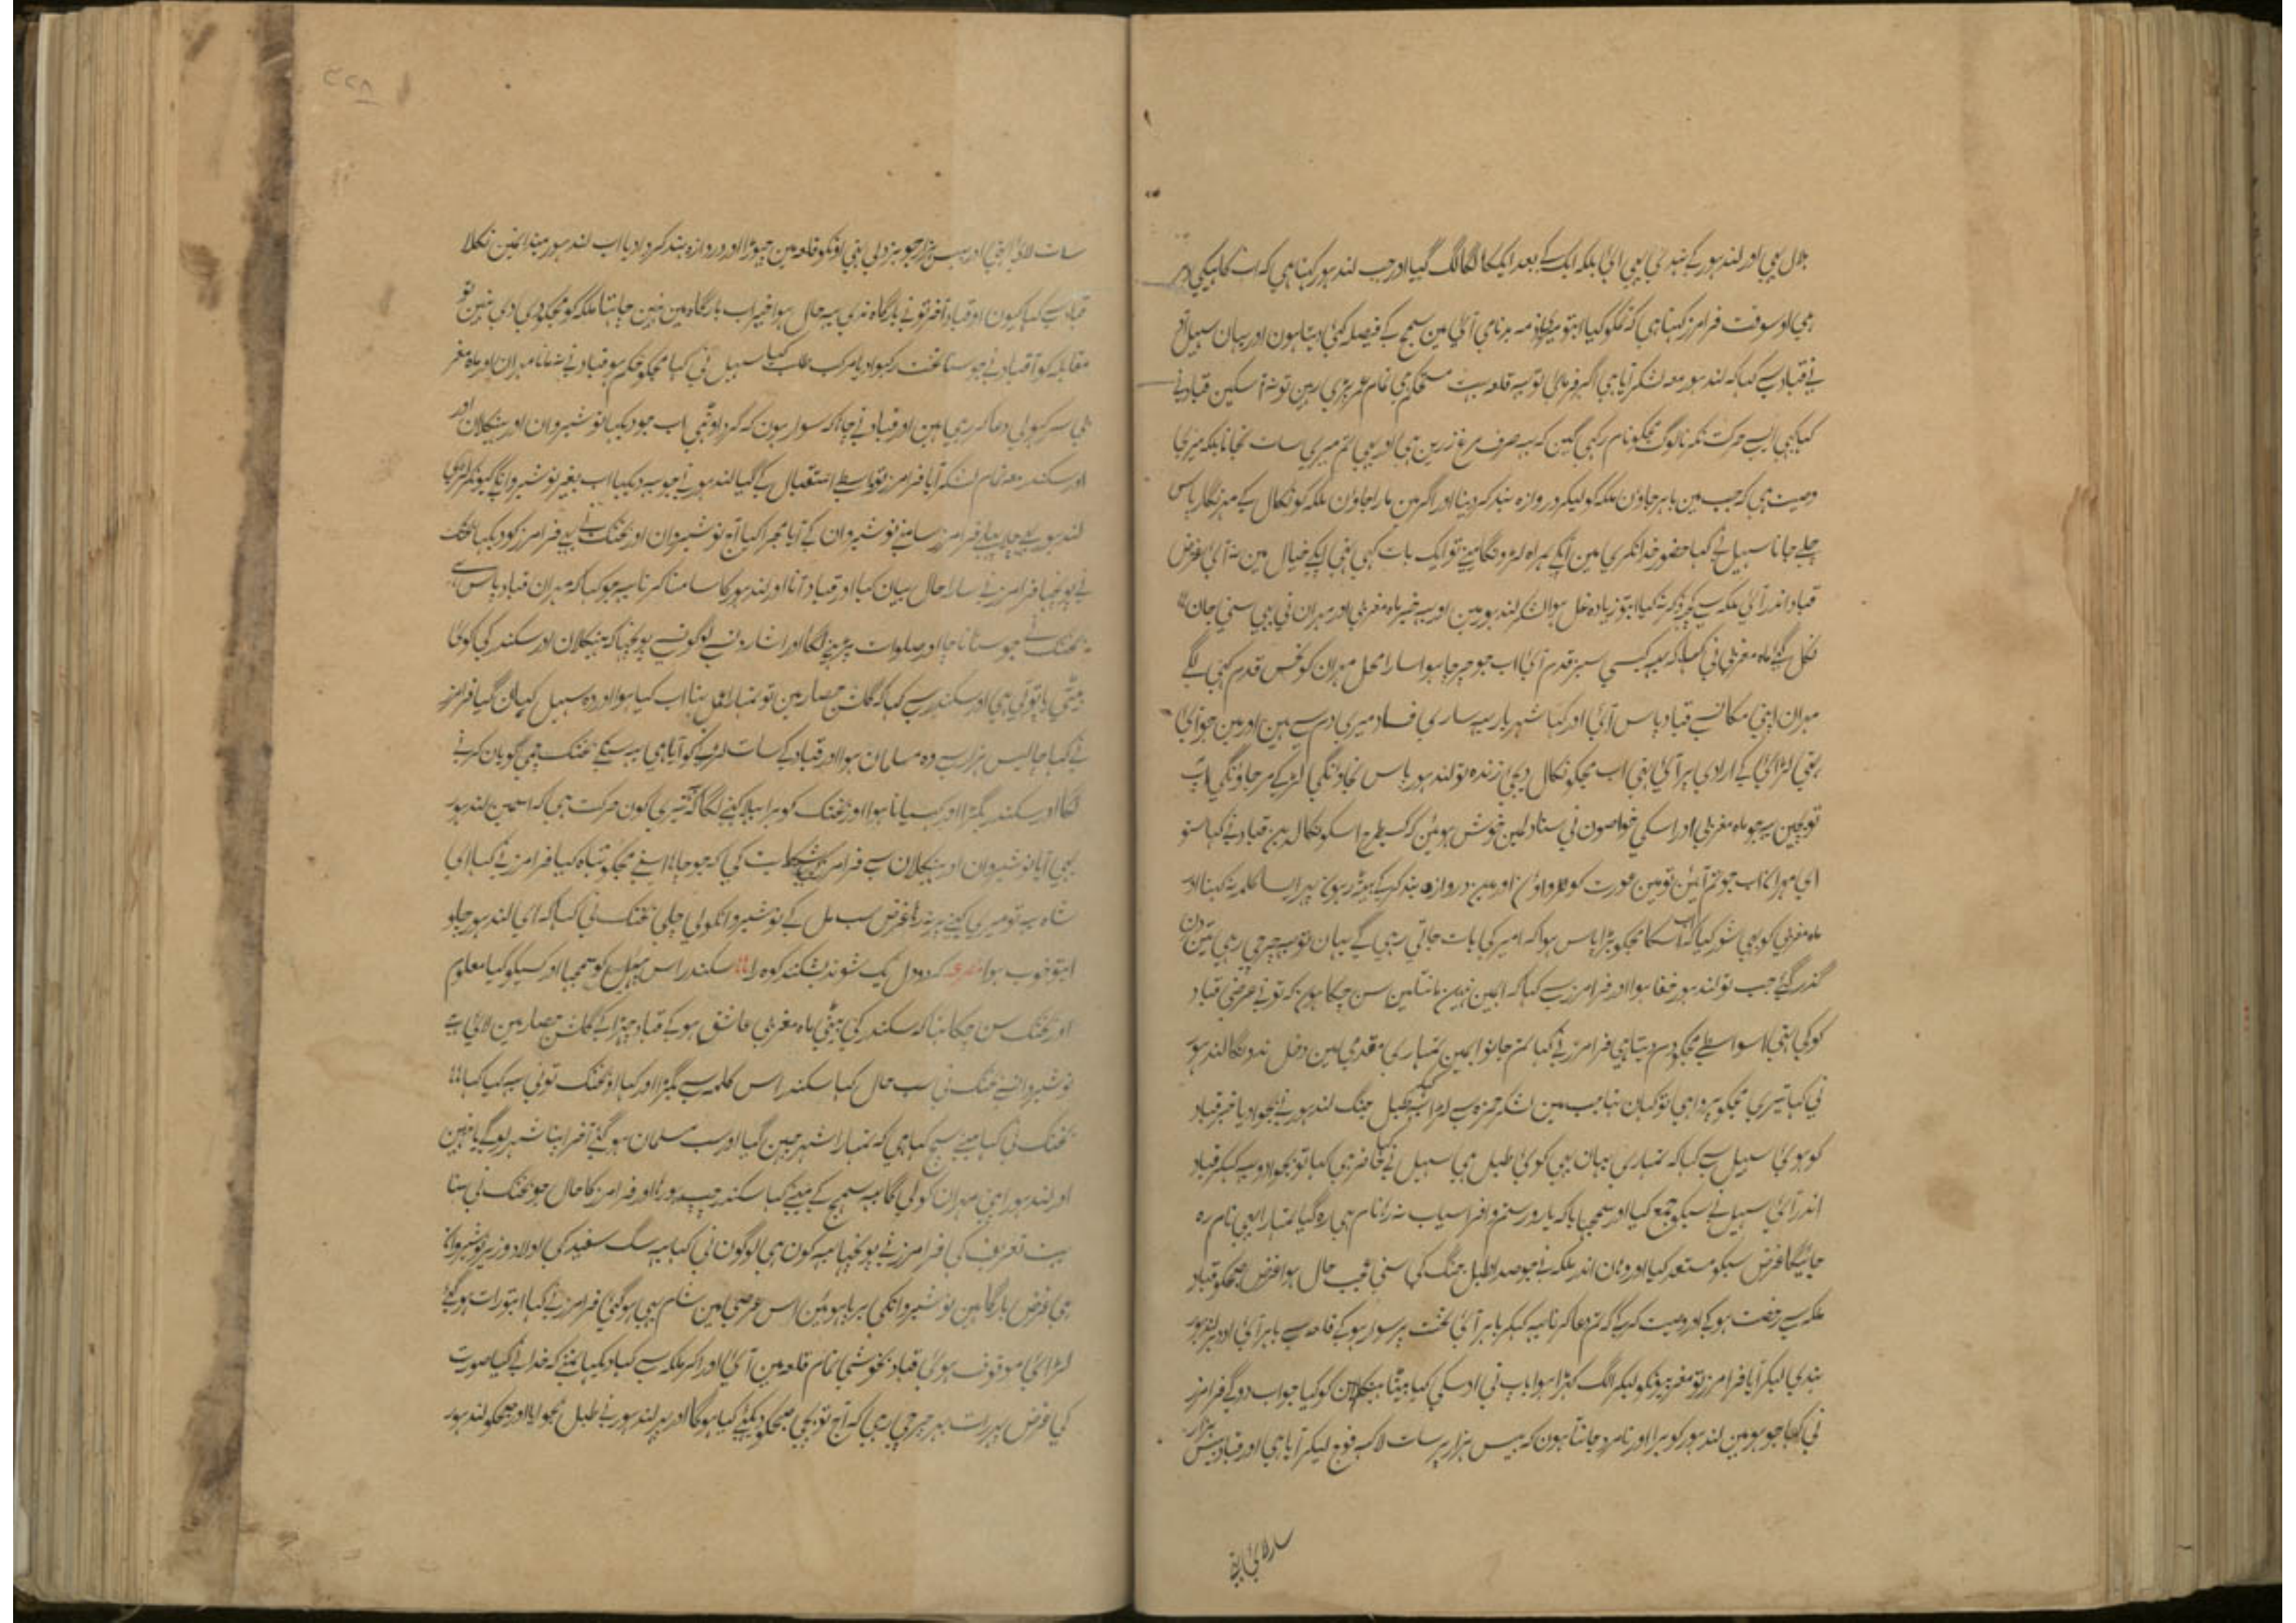 بلال بهی اور لندہور کے بندگی بهی ائی بلکہ ایک کے بعد ایک کا لگا لگ گیا اور جب لندہور کہتا ہی کہ اب کاہیکی دیر
ہی اوسوقت فرامرز کہتا ہی کہ تمکو کیا ابتو میری ذمہ بدنامی آئی مین سمجھ کے فیصلہ کئی دیتا ہون اور یہان سہیل
نے قباد سے کہا کہ لندہور معہ لشکر آیا ہی اگر فرمائی تو یہ قلعہ بہت مستحکم ہی تمام عمر پڑی رہین تو نہ آسکین قباد نے
کہا کبہی ایسے حرکت نکرنا لوگ مجکو نام رکہی گین کہ یہہ صرف مرغ زرین ہی اور بهی تم میری سات نجانا بلکہ میری
وصیت ہی کہ جب مین باہر جاؤن ملکہ کو لیکر دروازہ بند کر دینا اور اگر مین مارا جاؤن ملکہ کو نکال کے مہرنگار پاس
چلے جانا سہیل نے کہا حضور خدا نکری مین آپکے ہمراہ لڑونگا مینے تو ایک بات کہی تہی آپکے خیال مین نہ آئی غرض
قباد اندر آئی ملکہ سے کچہہ ذکر نہ کیا ابتو زیادہ غل ہوا لشکر لندہور مین اور یہہ خبر ماہ مغربی اور مہران نی بهی سنی جان
نکل گئی ماہ مغربی نی کہا کہ یہہ کیسی سبز قدم آئی اب جو چرچا ہوا سارا محل مہران کو نحس قدم کہنی لگے
مہران اپنی مکان سے قباد پاس آئی اور کہا شہریار یہہ ساری فساد میری دم سے ہین اور مین جو آئی
تہی لڑائی کے ارادی پر آئی تہی اب مجکو نکال دیجی زندہ تو لندہور پاس نجاونگی لڑکے مر جاونگی آپ
تو بچین یہہ جو ماہ مغربی اور اسکی خواصون نی سنا دلمین خوش ہوئین کہ کسیطرح اسکو نکال دین قباد نے کہا سنو
ای مہران اب جو تم آئین تو مین عورت کو لڑواؤن اور مین دروازہ بند کر کے بیٹہہ رہون پہر ایسا کلمہ نہ کہنا اور
ماہ مغربی کو بهی شور کیا کہ اسکا مجکو بڑا پاس ہوا کہ امیر کی بات جاتی رہی گے یہان تو یہہ چرچی رہی تین دن
گذر گئے جب تو لندہور خفا ہوا اور فرامرز سے کہا کہ امین نہین مانتا مین سن چکا ہون کہ تونے عرضی قباد
کو کی تہی اسواسطے مجکو دم دیتا ہی فرامرز نے کہا تم جانو امین تمہاری مقدمی مین دخل ندونگا لندہور
نی کہا تیری مجکو پروا ہی تو کہان تہا جب مین لشکر حمزہ سے لڑا طبل جنگ لندہور نے بجوادیا خبر قباد
کو ہوئی سہیل سے کہا کہ تمہاری یہان بهی کوئی طبل ہی سہیل نے کہا حاضر ہی کہا تو بجوادو یہہ کہکر قباد
اندر آئی سہیل نے سبکو جمع کیا اور سمجہایا کہ یارو رستم و افراسیاب نہ رہا نام ہی رہ گیا تمہارا بهی نام رہ
جائیگا غرض سبکو مستعد کیا اور وہان اندر ملکہ نے جو صدا طبل جنگ کی سنی عجب حال ہوا غرض صبحکو قباد
ملکہ سے رخصت ہوکے اور وصیت کر کے کہ تم دعا کرنا یہہ کہکر باہر آئی تخت پر سوار ہوکے قلعہ سے باہر آئی اودہر لندہور
بندی لیکر آیا فرامرز تو مغربیونکو لیکر الگ کہڑا ہوا باپ نی اوسکی کہا بیٹا ہیکلان کو کیا جواب دوگے فرامرز
نی کہا جو ہو مین لندہور کو برا اور نامرد جانتا ہون کہ بیس ہزار پر سات لاکہہ فوج لیکر آیا ہی اور قباد بیس ہزار
سات لائی تہی اور بیس ہزار جو بزدلی تہی اونکو قلعہ مین چہوڑا اور دروازہ بند کروا دیا اب لندہور میدانمین نکلا
قباد سے کہا کیون او قباد آخر تونے بارگاہ ندی یہہ حال ہوا خیر اب بارگاہ مین نہین چاہتا ملکہ کو مجکو دی دی نہین تو
مقابلہ کو آ قباد نے جو سنا تخت رکہوا دیا مرکب طلب کیا سہیل نی کہا مجکو حکم ہو قباد نے نہ مانا مہران اور ماہ مغربی
سر کہولی دعا کر رہی ہین اور قباد نے چاہا کہ سوار ہون کہ گرد اوٹہی اب جو دیکہا نوشیروان اور ہیکلان اور
اور سکندر معہ تمام لشکر آیا فرامرز تو واسطے استقبال کے گیا لندہور نے جو یہہ دیکہا اب بغیر نوشیروانکے کیونکر لڑیگا
لندہور بهی چلا پہلے فرامرز سامنے نوشیروان کے آیا مجرا کیا آج نوشیروان اور بختک نے بهی فرامرز کو دیکہا بختک
نے پوچہا فرامرز نے سارا حال بیان کیا اور قباد آنا اور لندہور کا سامنا کرنا یہہ جو کہا کہ مہران قباد پاس ہے
بختک نے جو سنا ناچا اور صلوات پڑہنے لگا اور اشارون سے لوگون سے پوچہا کہ ہیکلان اور سکندر کی کوئی
بیٹی یا پوتی ہی اور سکندر سے کہا کہ گلشن حصار مین تو تمہارا عمل تہا اب کیا ہوا اور وہ سہیل کہان گیا فرامرز
نے کہا چالیس ہزار سے وہ مسلمان ہوا اور قباد کے سات لڑنے کو آیا ہی یہہ سنکے بختک چمی گویان کرنے
لگا اور سکندر بگڑا اور کہسیانا ہوا اور بختک کو برا بہلا کہنے لگا کہ تیری کون حرکت ہی کہ اسمین لندہور
بهی آیا نوشیروان اور ہیکلان سے فرامرز کی شکایت کی کہ جو چاہا اسنے مجکو تباہ کیا فرامرز نے کہا ای
شاہ یہہ تو میری کہنے پر نہ رہا غرض سب مل کے نوشیروانکو لی چلی بختک نی کہا کہ ای لندہور چلو
ابتو خوب ہوا مصرعہ کہ دو دل یک شوند بشکند کوہ را سکندر اس مصرع کو سمجہا اور سبکو کیا معلوم
اور بختک سن چکا تہا کہ سکندر کی بیٹی ماہ مغربی عاشق ہوکے قباد چہڑا کے گلشن حصار مین لائی ہے
نوشیروانسے بختک نی سب حال کہا سکندر اس کلمہ سے بگڑا اور کہا او بختک تونی یہہ کیا کہا
بختک نی کہا مینے سچ کہا ہی کہ تمہارا شہر چہین گیا اور سب مسلمان ہوگئے آخر اپنا شہر لوگے یا نہین
اور لندہور اپنی مہران کو لی گا یہہ سمجھ کے مینے کہا سکندر چپ ہو رہا اور فرامرز کا حال جو بختک نی سنا
بہت تعریف کی فرامرز نے پوچہا یہہ کون ہی لوگون نی کہا یہہ سگ سفید کی اولاد وزیر نوشیروانکا
ہی غرض بارگاہین نوشیروانکی برپا ہوئین اس عرصی مین شام بهی ہوگئی فرامرز نے کہا ابتو رات ہوگئی
لڑائی موقوف ہوئی قباد بخوشی تمام قلعہ مین آئی اور آکر ملکہ سے کہا دیکہا تمنے کہ خدا نے کیا صورت
کی غرض پہر رات بہر چرچی رہی کہ آج تو بچی صبحکو دیکہئے کیا ہوگا اور پہر لندہور نے طبل بجوایا اور صبحکو لندہور